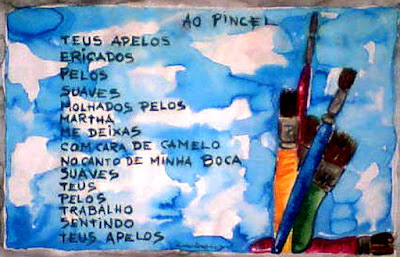 AO PINCEL
TEUS APELOS
ERIÇADOS
PELOS
SUAVES
MOLHADOS PELOS
MARTHA
ME DEIXAS
COM CARA DE CAMELO
NO CANTO DE MINHA BOCA
SUAVES
TEUS
PELOS
TRABALHO
SENTINDO
TEUS APELOS